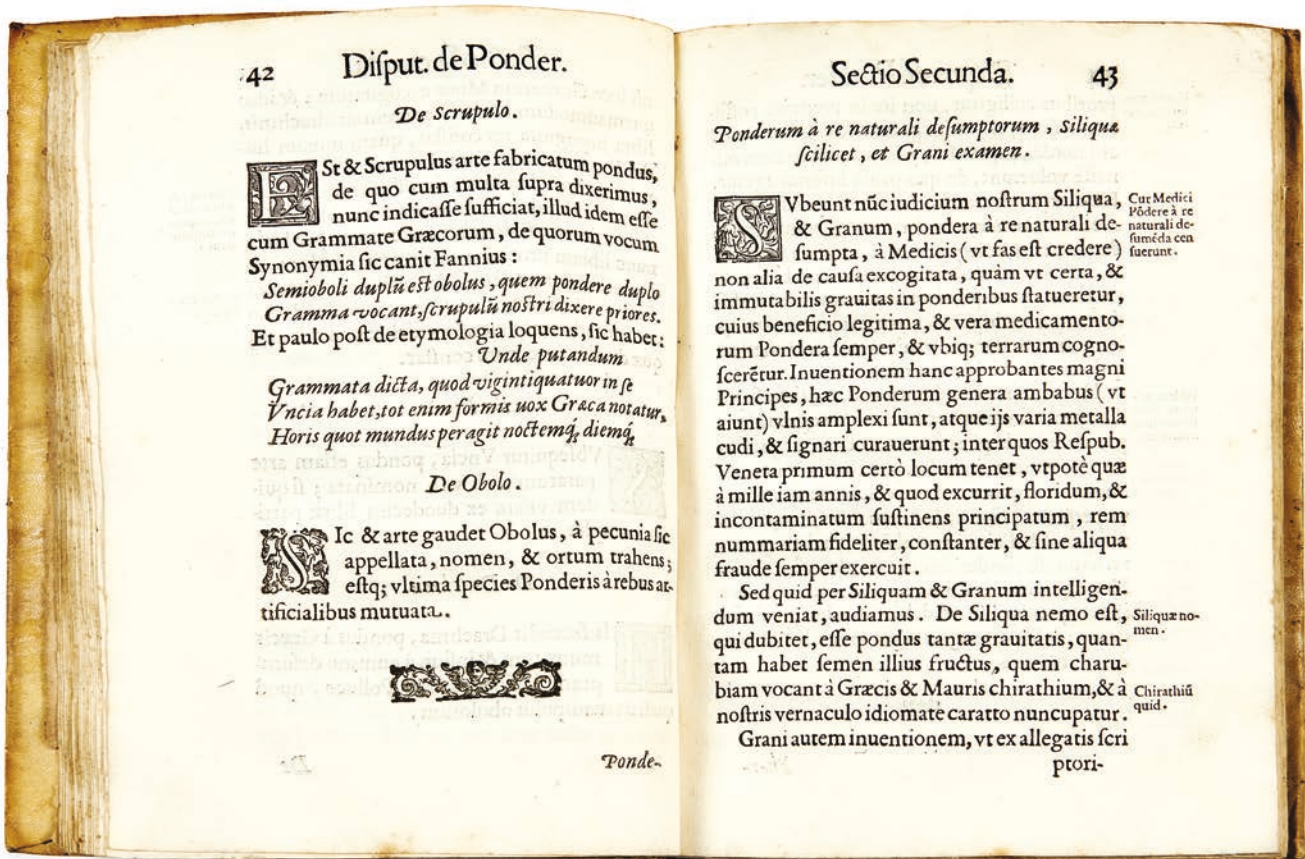 42 Diſput. de Ponder.
De Scrupulo.
ESt & Scrupulus arte fabricatum pondus,
de quo cum multa ſupra dixerimus,
nunc indicaſſe ſufficiat, illud idem eſſe
cum Grammate Græcorum, de quorum vocum
Synonymia ſic canit Fannius:
Semioboli duplũ eſt obolus, quem pondere duplo
Gramma vocant, ſcrupulũ noſtri dixere priores.
Et paulo poſt de etymologia loquens, ſic habet:
Unde putandum
Grammata dicta, quod vigintiquatuor in ſe
Vncia habet, tot enim formis uox Græca notatur,
Horis quot mundus peragit noctemq́, diemq́,
De Obolo.
SIc & arte gaudet Obolus, à pecunia ſic
appellata, nomen, & ortum trahens;
eſtq; vltima ſpecies Ponderis à rebus ar-
tificialibus mutuata..
Ponde-
Sectio Secunda. 43
Ponderum à re naturali deſumptorum, Siliquæ
ſcilicet, et Grani examen.
SVbeunt nũc iudicium noſtrum Siliqua,
& Granum, pondera à re naturali de-
ſumpta, à Medicis (vt fas eſt credere)
non alia de cauſa excogitata, quàm vt certa, &
immutabilis grauitas in ponderibus ſtatueretur,
cuius beneficio legitima, & vera medicamento-
rum Pondera ſemper, & vbiq; terrarum cogno-
ſcerẽtur. Inuentionem hanc approbantes magni
Principes, hæc Ponderum genera ambabus (vt
aiunt) vlnis amplexi ſunt, atque ijs varia metalla
cudi, & ſignari curauerunt; inter quos Reſpub.
Veneta primum certò locum tenet, vtpotè quæ
à mille iam annis, & quod excurrit, floridum, &
incontaminatum ſuſtinens principatum, rem
nummariam fideliter, conſtanter, & ſine aliqua
fraude ſemper exercuit.
Sed quid per Siliquam & Granum intelligen-
dum veniat, audiamus. De Siliqua nemo eſt,
qui dubitet, eſſe pondus tantæ grauitatis, quan-
tam habet ſemen illius fructus, quem charu-
biam vocant à Græcis & Mauris chirathium, & à
noſtris vernaculo idiomate caratto nuncupatur.
Grani autem inuentionem, vt ex allegatis ſcri
ptori-
Cur Medici
Põdere à re
naturali de-
ſumẽda cen
ſuerunt.
Siliquæ no-
men.
Chirathiũ
quid.